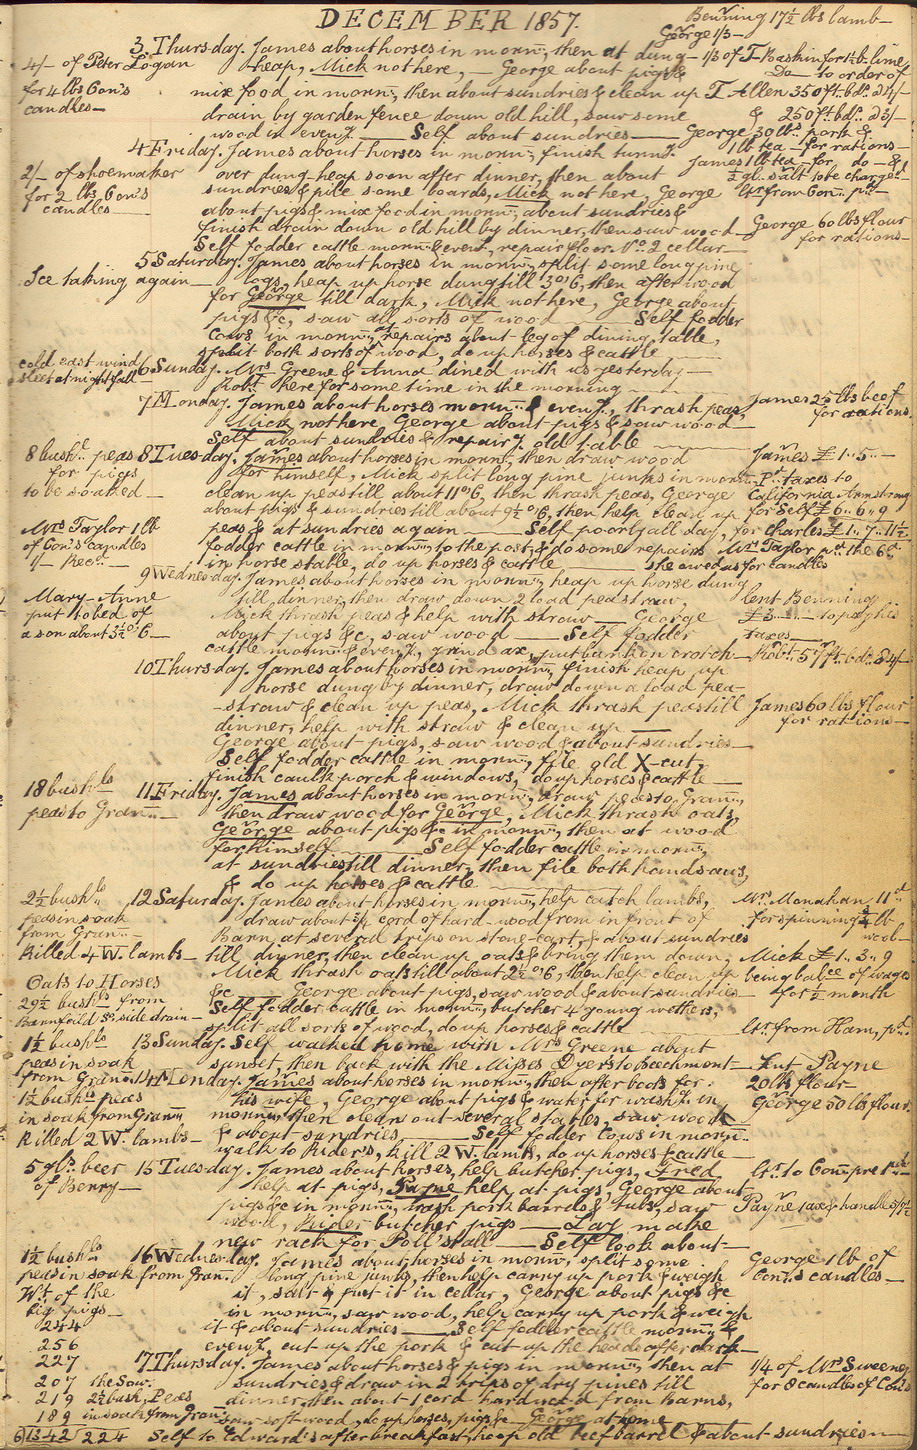 DECEMBER 1857.
Benning 17½ lbs lamb—
George 1/3—
3. Thursday. James about horses in mornᵍ, then at dung— 1/3 of T. Baskin for 1½ b. lime,
4/- of Peter Logan heap, Mick not here, — George about pigs & Do— to order of
for 4 lbs Con's mix food in mornᵍ, then about sundries & clean up T. Allen 350 ft. bdˢ. 24/-
candles— drain by garden fence down old hill, saw some & 250 ft. bdˢ. 23/-
wood in evenᵍ — Self about sundries — George 30 lbˢ pork &
1 lb tea— for rations—
4 Friday. James about horses in mornᵍ, finish turnᵍ James 1 lb tea— for— do— & 1
2/- of shoemaker over dung heap soon after dinner, then about ½ gl. salt to be charged—
for 2 lbs Con's sundries & pile some boards, Mick not here, George
candles— about pigs & mix food in mornᵍ, about sundries &
finish drain down old hill by dinner, then saw wood— George 60 lbs flour
Self fodder cattle mornᵍ & evenᵍ, repair floor Nº 2 cellar— for rations—
5 Saturday. James about horses in mornᵍ, split some long pine
Ice taking again— logs, heap up horse dung till 3 o'c, then after wood
for George till dark, Mick not here, George about
pigs &c, saw all sorts of wood — Self fodder
cows in mornᵍ, at repairs about leg of dining table,
split both sorts of wood, do up horses & cattle
cold east wind 6 Sunday. Mrs Greene & Anna dined with us yesterday—
sleet at night fall— Robᵗ. here for some time in the morning
7 Monday. James about horses mornᵍ & evenᵍ, thrash peas, James 25 lbs beef
Mick not here George about pigs & saw wood— for rations
Self about sundries & repairᵍ old table
8 bushˢ. peas 8 Tuesday. James about horses in mornᵍ, then draw wood James £1.. 5..—
for pigs for himself, Mick split long pine junks in mornᵍ, Pᵈ. taxes to
to be soaked— clean up peas till about 11 o'c, then thrash peas, George California Armstrong
about pigs & sundries till about 9½ o'c, then help clean up for Self £6.. 6.. 9
Mrs Taylor 1 lb peas & at sundries again — Self poorly all day, for Charles £1.. 7.. 11½
of Con's candles fodder cattle in mornᵍ, to the post, & do some repairs Mrs Taylor pᵈ. the 6ᵈ
1/- Recᵈ.— in horse stable, do up horses & cattle — she owed us for candles
9 Wednesday. James about horses in mornᵍ, heap up horse dung
Mary-Anne till dinner, then draw down 2 load pea straw, lent Benning
put to bed of Mick thrash peas & help with straw — George £3..— to pay his
a son about 3½ o'c— about pigs &c, saw wood — Self fodder taxes—
cattle mornᵍ & evenᵍ, grind ax, put bunk on crotch— Robᵗ. 57 ft. bdˢ
10 Thursday. James about horses in mornᵍ, finish heap up
horse dung by dinner, draw down a load pea-
-straw & clean up peas, Mick thrash peas till James 60 lbs flour
dinner, help with straw & clean up for rations—
George about pigs, saw wood & about sundries—
Self fodder cattle in mornᵍ, file old X-cut,
finish caulk porch & windows, do up horses & cattle—
18 bushˡˢ 11 Friday. James about horses in mornᵍ, draw peas to Granʸ,
peas to Granʸ.— then draw wood for George, Mick thrash oats,
George about pigs &c in mornᵍ, then at wood
for himself — Self fodder cattle in mornᵍ,
at sundries till dinner, then file both hand saws,
& do up horses & cattle
2½ bushˡˢ 12 Saturday. James about horses in mornᵍ, help catch lambs, Mrs. Monahan 11ᵈ
peas in soak draw about ¾ cord of hard-wood from in front of for spinning ¾ lb
from Gran.— Barn at several trips on stone-cart, & about sundries wool—
Killed 4 W. lambs— till dinner, then clean up oats & bring them down, Mick £1.. 3.. 9
Oats to Horses Mick thrash oats till about 2½ o'c, then help clean up being balᶜᵉ of wages
29½ bushˡˢ from &c — George about pigs, saw wood & about sundries— for ½ month
Barnfield Sᵒ. side drain— Self fodder cattle in mornᵍ, butcher 4 young wethers,
split all sorts of wood, do up horses & cattle Lᵗʳ. from Ham, pᵈ.—
1½ bushˡˢ 13 Sunday. Self walked home with Mrs Greene about
peas in soak sunset, then back with the Misses Dyers to Beechmont— Lent Payne
from Gran. 14 Monday. James about horses in mornᵍ, then after boots for 20 lbs flour—
1½ bushˡˢ peas his wife, George about pigs & water for washᵍ in George 50 lbs flour
in soak from Granʸ mornᵍ, then clean out several stables, saw wood
Killed 2 W. lambs— & about sundries, — Self fodder cows in mornᵍ,
walk to Rider's, kill 2 W. lambs, do up horses & cattle—
5 glˢ. beer 15 Tuesday. James about horses, help butcher pigs, Fred
of Berry— help at pigs, Payne help at pigs, George about
pigs &c in mornᵍ, wash pork barrels & tubs, saw Payne 1 axe & handle 5/5½
wood, Rider butcher pigs — Lay make
new rack for Poll's stall — Self look about—
1½ bushˡˢ 16 Wednesday. James about horses in mornᵍ, split some George 1 lb of
peas in soak from Gran. long pine junks, then help carry up pork & weigh Con's candles—
Wᵗ. of the it, salt & put it in cellar, George about pigs &c
big pigs— in mornᵍ, saw wood, help carry up pork & weigh
244 it & about sundries — Self fodder cattle mornᵍ &
256 evenᵍ, cut up the pork & cut up the heads after dark—
227 17 Thursday. James about horses & pigs in mornᵍ, then at 1/4 of Mrs Sweeney
207 the Sow. sundries & draw in 2 trips of dry pines till for 8 candles of Con's
219 2½ bush. Peas dinner, then about 1 cord hard wood from barns,
189 in soak from Gran. saw soft wood, do up horses, pigs &c— George at home
6)1342(224 Self to Edward's after breakfast, hoop old beef barrel & about sundries—